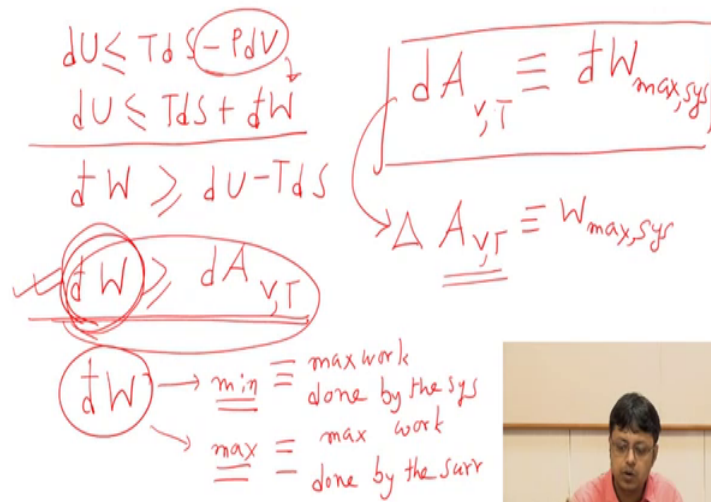 dU ≤ TdS - PdV
dU ≤ TdS + đW
đW ≥ dU - TdS
đW ≥ dA V,T
đW → min ≡ max work
done by the sys
→ max ≡ max work
done by the surr
dA V,T ≡ đW max,sys
Δ A V,T ≡ W max,sys